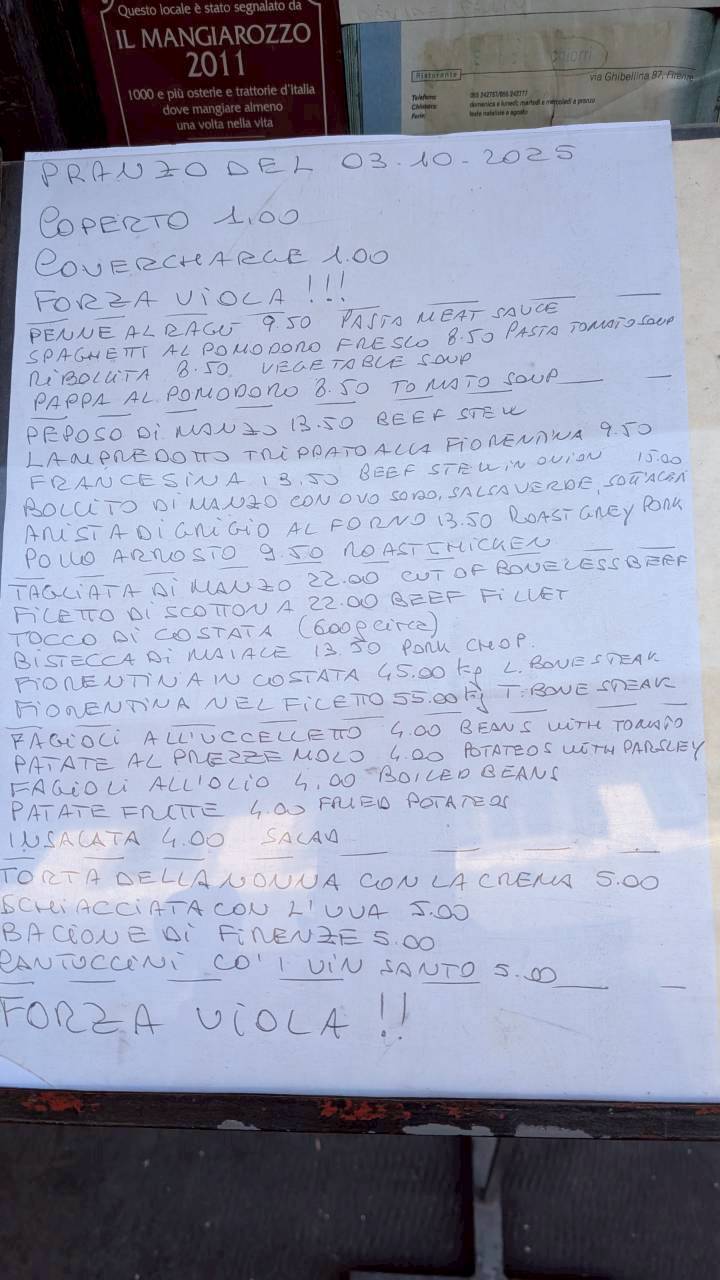 Questo locale è stato segnalato da
IL MANGIAROZZO
2011
1000 e più osterie e trattorie d'Italia
dove mangiare almeno
una volta nella vita
Ristorante
via Ghibellina 87, Firenze
Telefono:
Chiusura: domenica e lunedì, martedì e mercoledì a pranzo
Ferie: feste natalizie e agosto
PRANZO DEL 03.10.2025
COPERTO 1.00
COVERCHARGE 1.00
FORZA VIOLA !!!
PENNE AL RAGU 9.50 PASTA MEAT SAUCE
SPAGHETTI AL POMODORO FRESCO 8.50 PASTA TOMATO SOUP
RIBOLLITA 8.50 VEGETABLE SOUP
PAPPA AL POMODORO 8.50 TOMATO SOUP
PEPOSO DI MANZO 13.50 BEEF STEW
LAMPREDOTTO TRIPPATO ALLA FIORENTINA 9.50
FRANCESINA 13.50 BEEF STEW IN ONION 15.00
BOLLITO DI MANZO CON OVO SODO, SALSA VERDE, SOTTACETI
ARISTA DI GRIGIO AL FORNO 13.50 ROAST GREY PORK
POLLO ARROSTO 9.50 ROAST CHICKEN
TAGLIATA DI MANZO 22.00 CUT OF BONELESS BEEF
FILETTO DI SCOTTONA 22.00 BEEF FILLET
TOCCO DI COSTATA (600g circa)
BISTECCA DI MAIALE 13.50 PORK CHOP.
FIORENTINA IN COSTATA 45.00 kg L. BONE STEAK
FIORENTINA NEL FILETTO 55.00 kg T. BONE STEAK
FAGIOLI ALL'UCCELLETTO 4.00 BEANS WITH TOMATO
PATATE AL PREZZEMOLO 4.00 POTATEOS WITH PARSLEY
FAGIOLI ALL'OLIO 4,00 BOILED BEANS
PATATE FRITTE 4.00 FRIED POTATEOS
INSALATA 4.00 SALAD
TORTA DELLA NONNA CON LA CREMA 5.00
SCHIACCIATA CON L'UVA 5.00
BACIONE DI FIRENZE 5.00
CANTUCCINI CO' I VIN SANTO 5.00
FORZA VIOLA !!